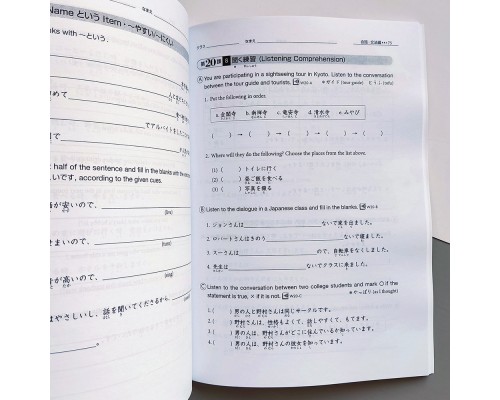 Name という Item・〜やすい/〜にくい
ks with 〜という。
と
めて
でアルバイトをしました
half of the sentence and fill in the blanks with the
いです, according to the given cues.
が安いので、
(live)
せまいので、
が高いので、
はやさしいし、話を聞いてくださるから、
クラス
第20課 8 聞く練習 (Listening Comprehension)
A You are participating in a sightseeing tour in Kyoto. Listen to the conversation
between the tour guide and tourists. W20-A
1. Put the following in order.
a. 金閣寺 b. 南禅寺 c. 竜安寺 d. 清水寺 e. みやび
( ) → ( ) → ( ) → ( ) → ( )
2. Where will they do the following? Choose the places from the list above.
(1) ( ) トイレに行く
(2) ( ) 昼ご飯を食べる
(3) ( ) 写真を撮る
B Listen to the dialogue in a Japanese class and fill in the blanks. W20-B
1. ジョンさんは ないで家を出ました。
2. ロバートさんはきのう ないで寝ました。
3. スーさんは ので、自転車をなくしました。
4. 先生は ないでクラスに来ました。
C Listen to the conversation between two college students and mark ○ if the
statement is true, × if it is not. W20-C *やっぱり (as I thought)
1. ( ) 男の人と野村さんは同じサークルです。
2. ( ) 野村さんは、性格もよくて、話しやすくて、もてます。
3. ( ) 男の人は、野村さんがどこに住んでいるか知っています。
4. ( ) 男の人は、野村さんの彼女を知っています。